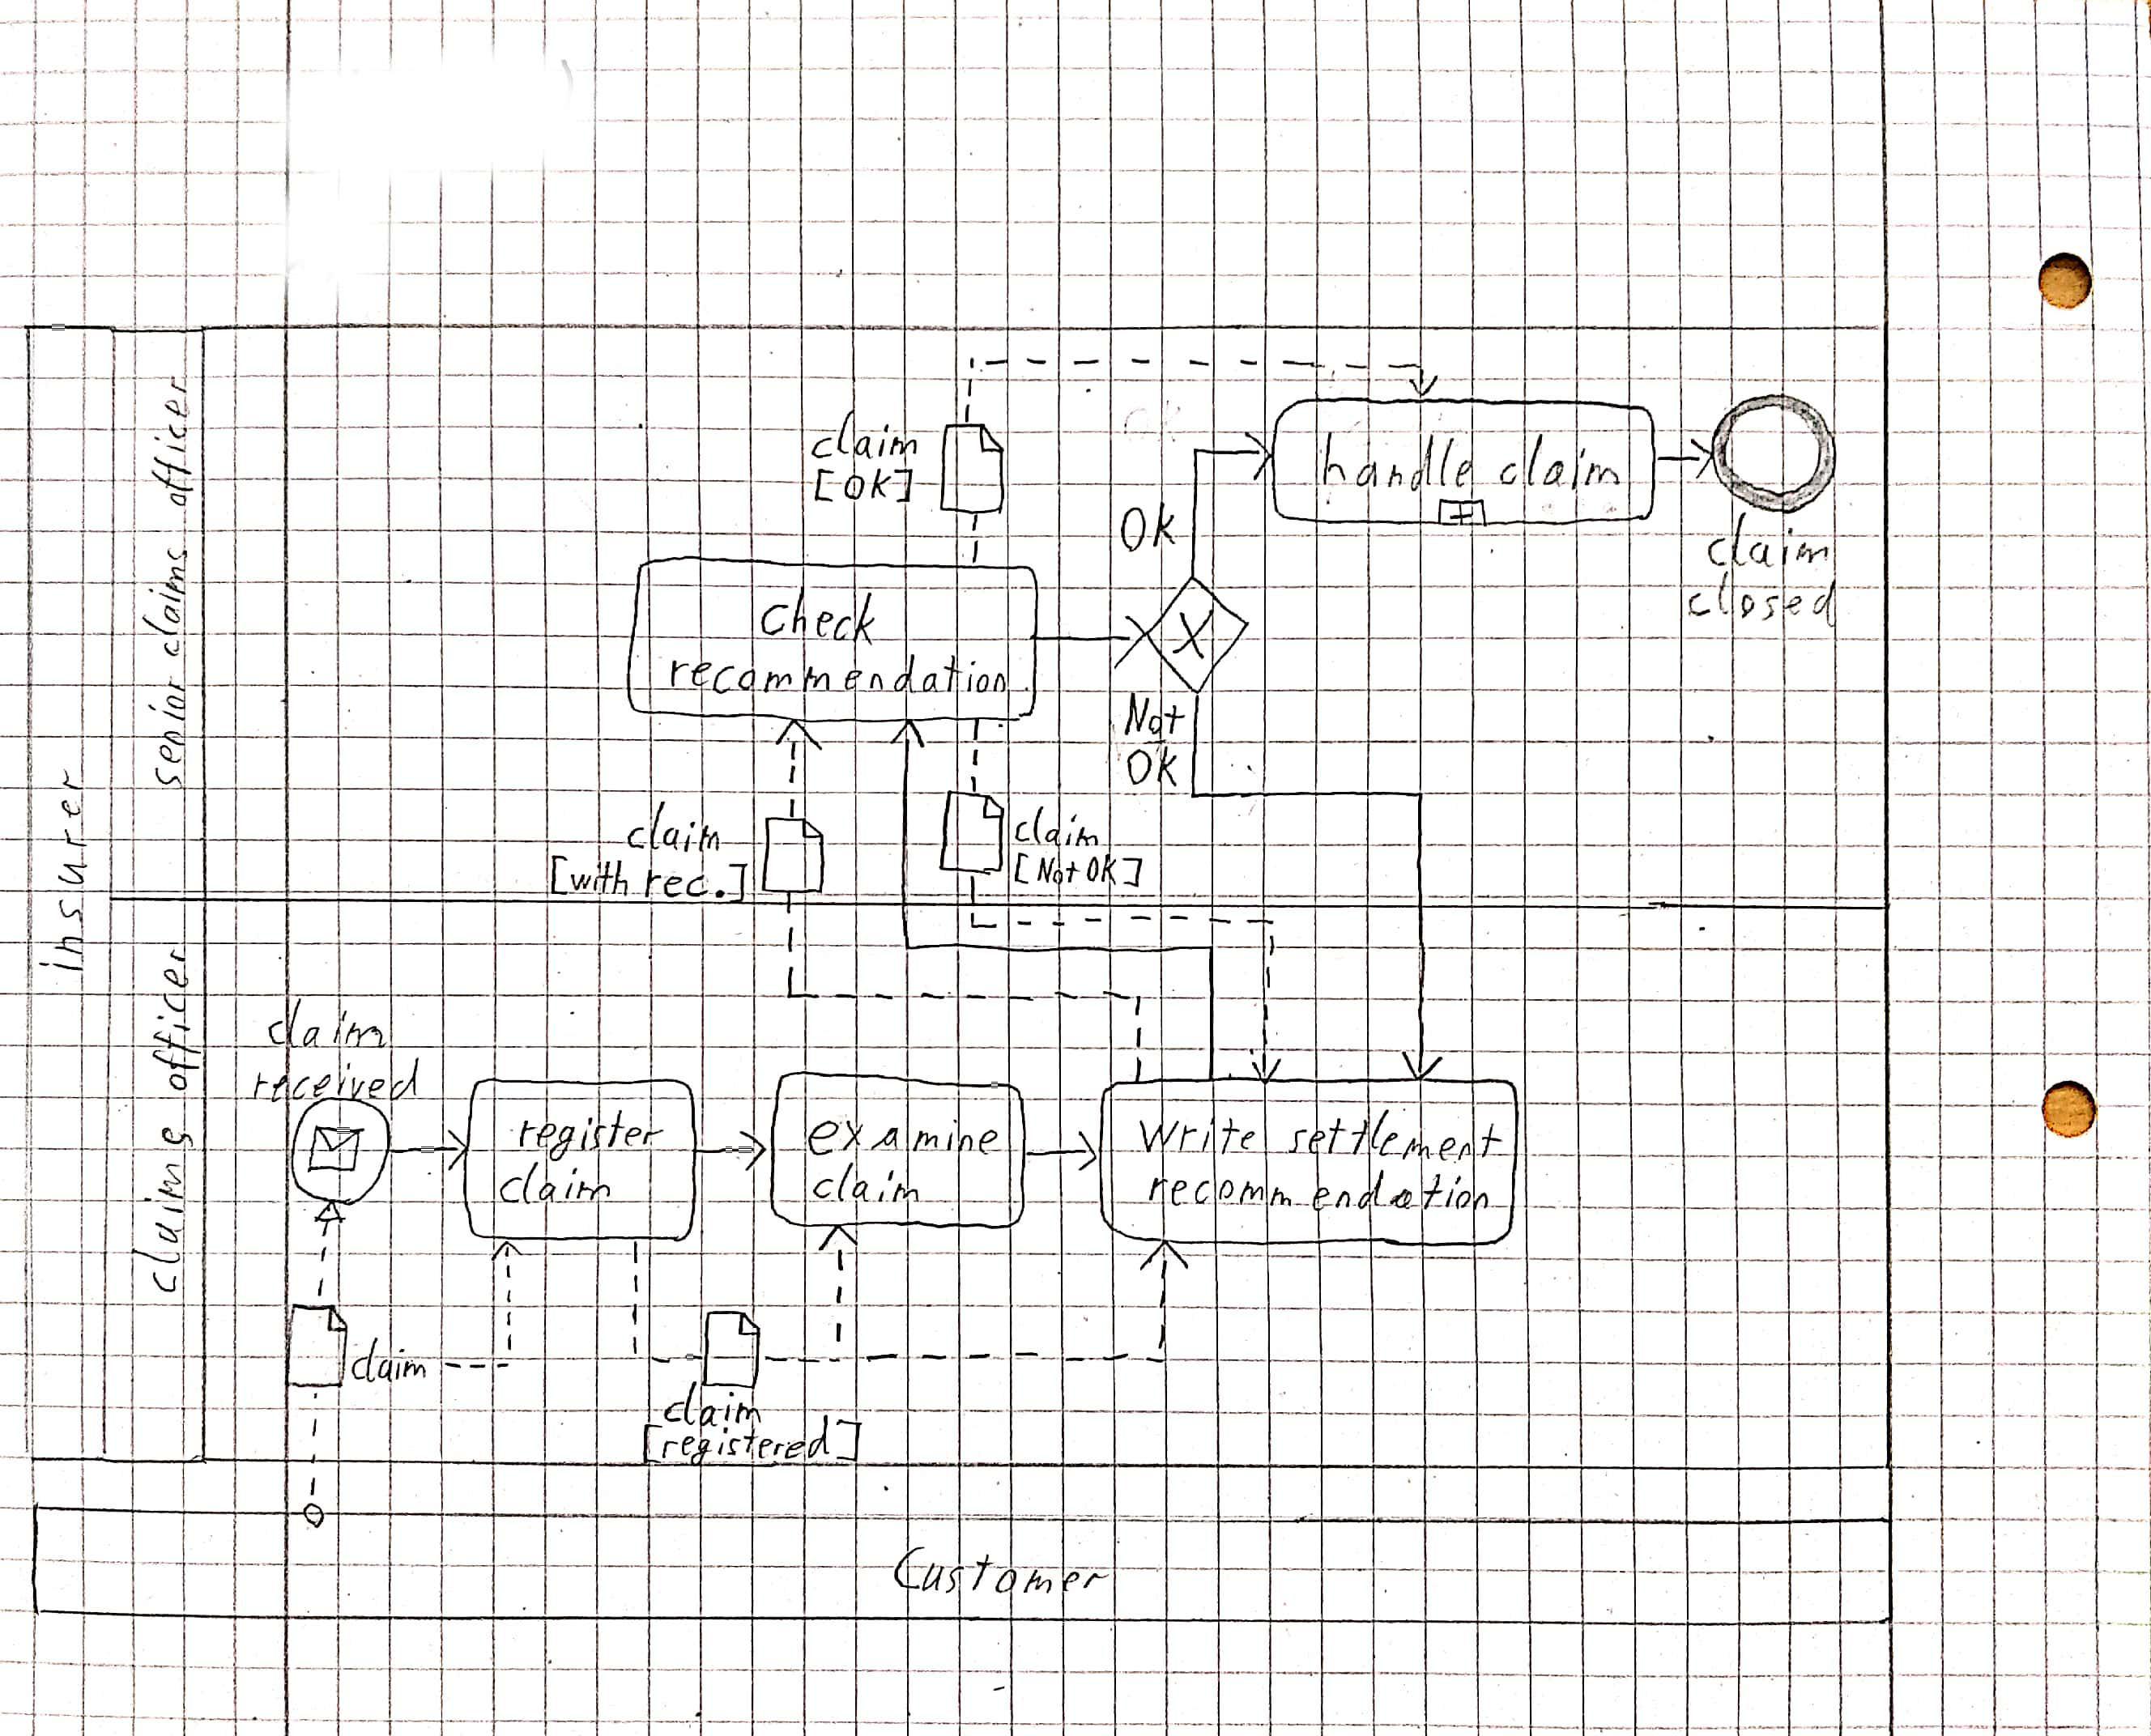 insurer
senior claims officer
claim
[OK]
OK
handle claim
claim
closed
check
recommendation
X
Not
OK
claim
[with rec.]
claim
[Not OK]
claims officer
claim
received
register
claim
examine
claim
Write settlement
recommendation
claim
claim
[registered]
Customer